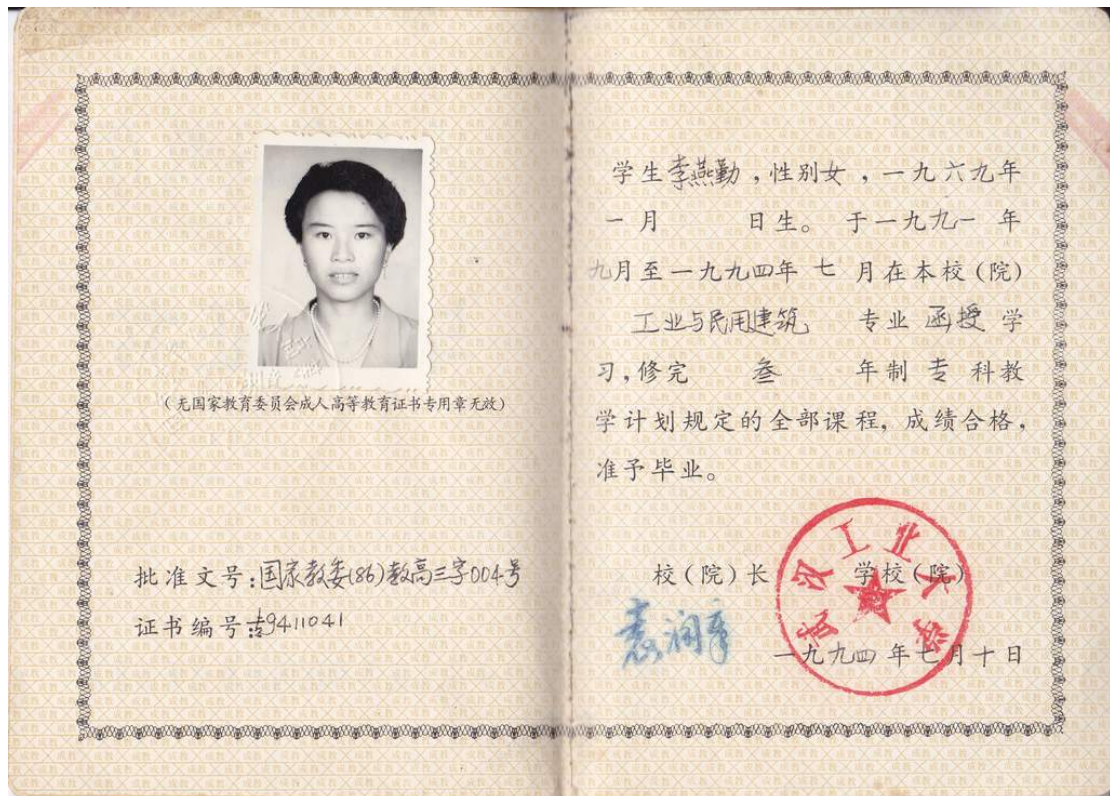 (无国家教育委员会成人高等教育证书专用章无效)
批准文号:国家教委(86)教高三字004号
证书编号:9411041
学生李燕勤,性别女,一九六九年
一月 日生。于一九九一 年
九月至一九九四年 七 月在本校(院)
工业与民用建筑 专业 函授 学
习,修完 叁 年制 专 科教
学计划规定的全部课程,成绩合格,
准予毕业。
校(院)长 学校(院)
袁润章
一九九四年七月十日
武汉工业大学